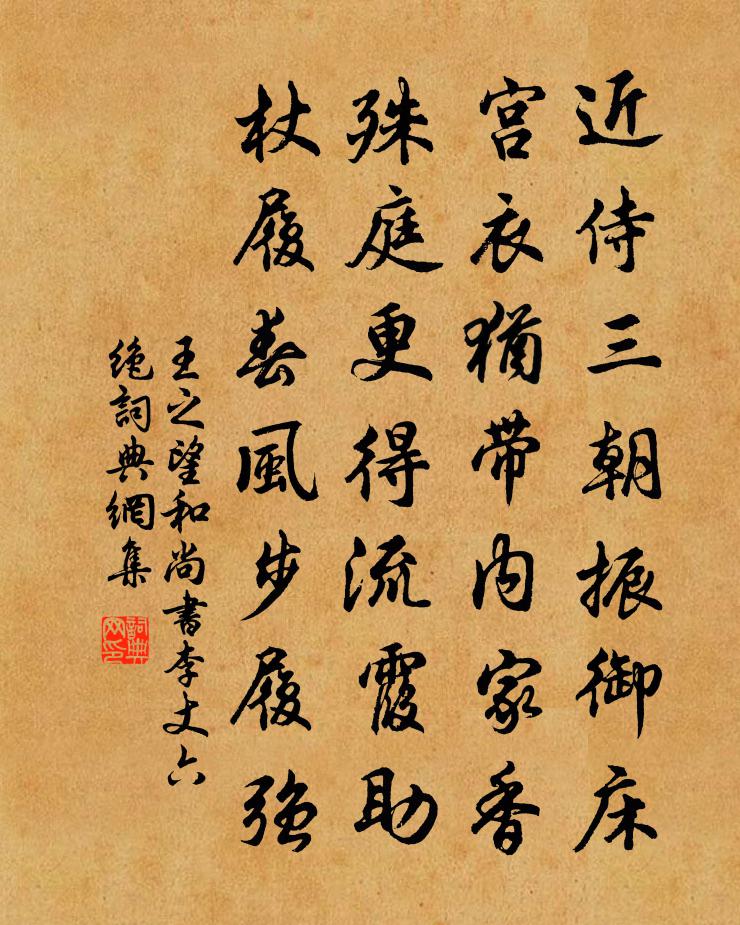 近侍三朝振御床
宫衣犹带内家香
殊庭更得流霞助
杖履春风步履强
王之望和尚書李丈六
绝詞典網集
詞典
网印